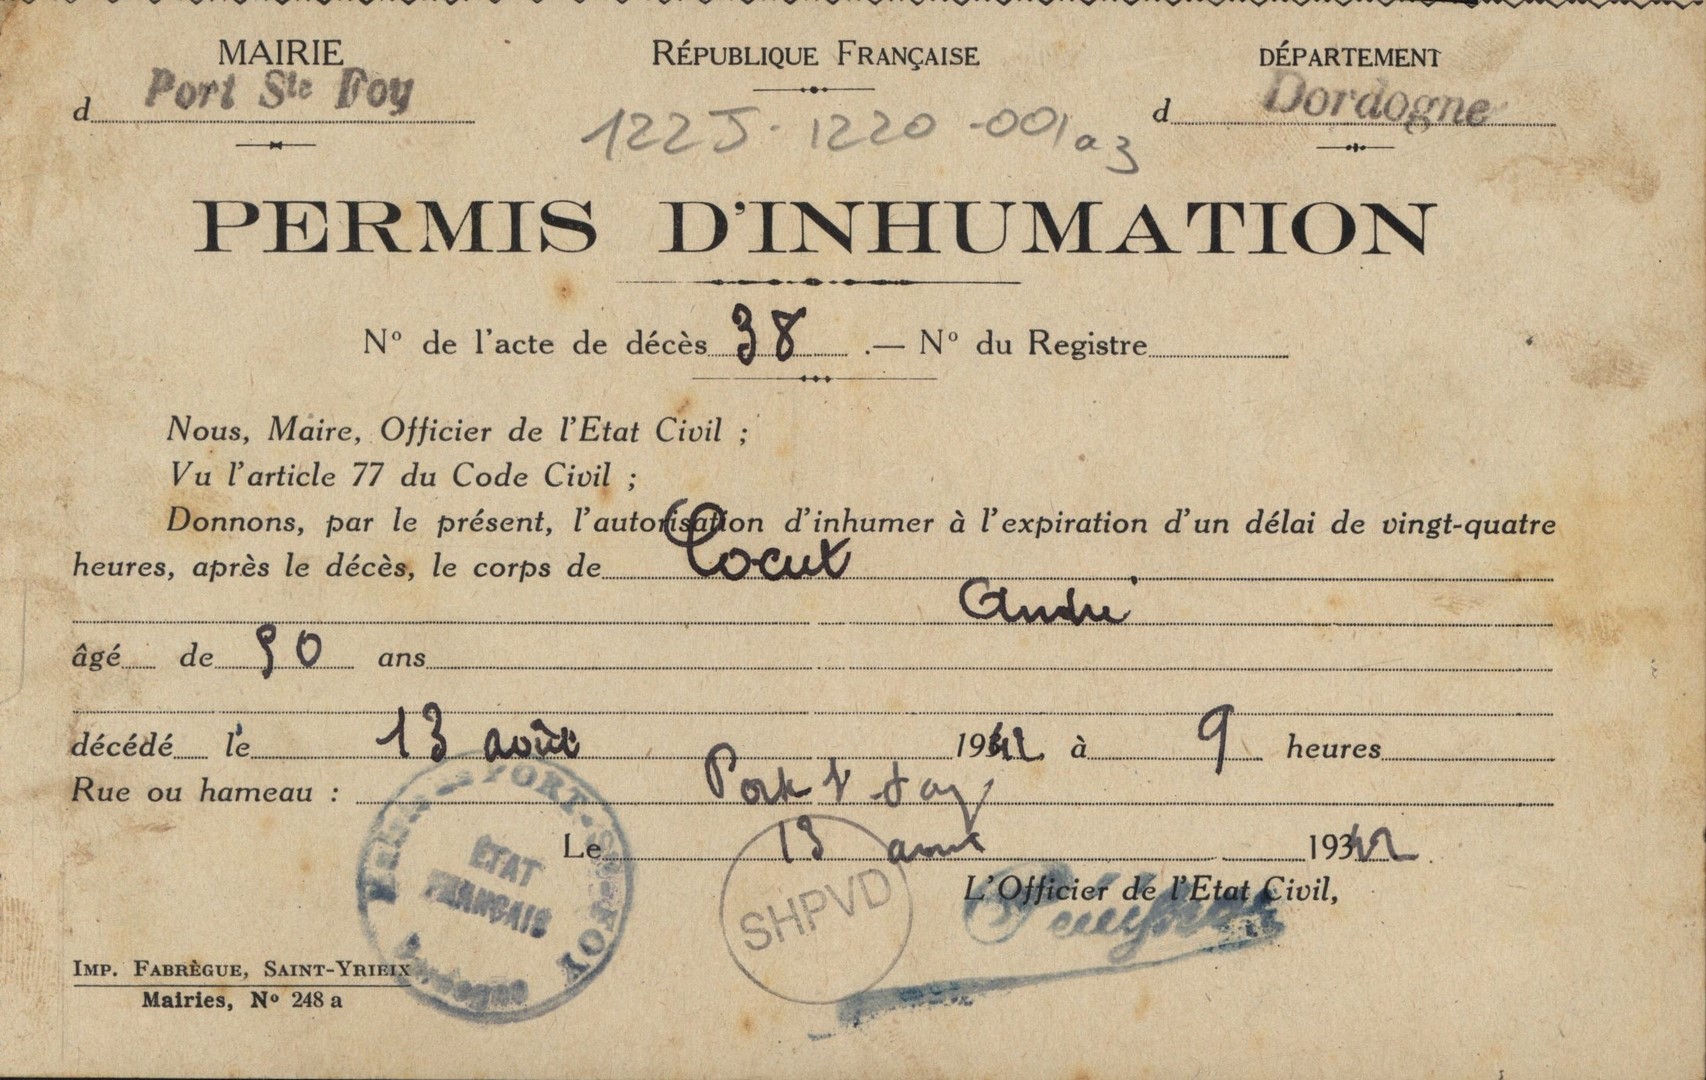 MAIRIE
d Port Ste Foy
RÉPUBLIQUE FRANÇAISE
122 J - 1220 - 001 a 3
DÉPARTEMENT
d Dordogne
PERMIS D'INHUMATION
No de l'acte de décès 38 .— No du Registre
Nous, Maire, Officier de l'Etat Civil ;
Vu l'article 77 du Code Civil ;
Donnons, par le présent, l'autorisation d'inhumer à l'expiration d'un délai de vingt-quatre
heures, après le décès, le corps de Cocut
André
âgé de 90 ans
décédé le 13 août 1942 à 9 heures
Rue ou hameau : Port
Le 13 1942
L'Officier de l'Etat Civil,
PORT-Ste-FOY
ÉTAT
FRANÇAIS
SHPVD
IMP. FABRÈGUE, SAINT-YRIEIX
Mairies, No 248 a